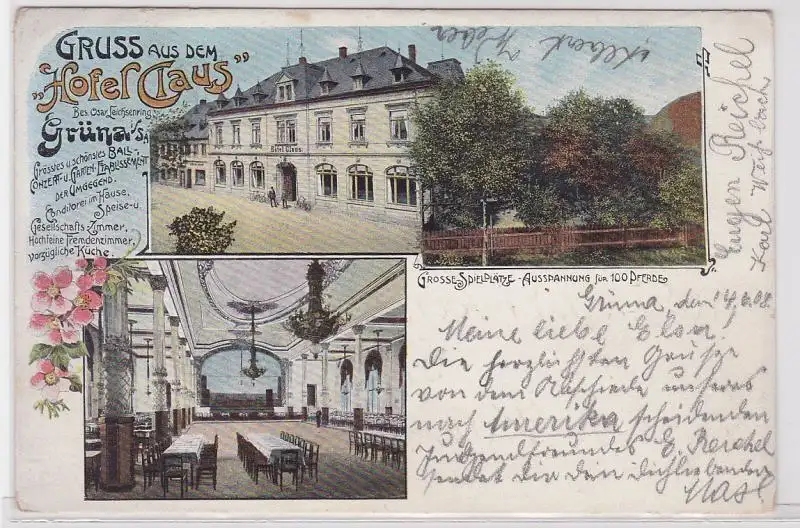 GRUSS AUS DEM
„Hotel Claus"
Bes. Oscar Leichsenring
Grüna i/S.
Grösstes u. schönstes BALL-,
CONZERT- u. GARTEN-ETABLISSEMENT
DER UMGEGEND.
Conditorei im Hause,
Speise- u.
Gesellschafts-Zimmer,
Hochfeine Fremdenzimmer,
vorzügliche Küche.
Hotel Claus
GROSSE SPIELPLÄTZE - AUSSPANNUNG FÜR 100 PFERDE
Albert
Eugen Reichel
Karl
Grüna, den 08.
Meine liebe Elsa!
Die herzlichsten Grüsse
von dem Abschiede unseres
nach Amerika scheidenden
Jugendfreundes E. Reichel
sendet Dir dein Dichliebender
Max